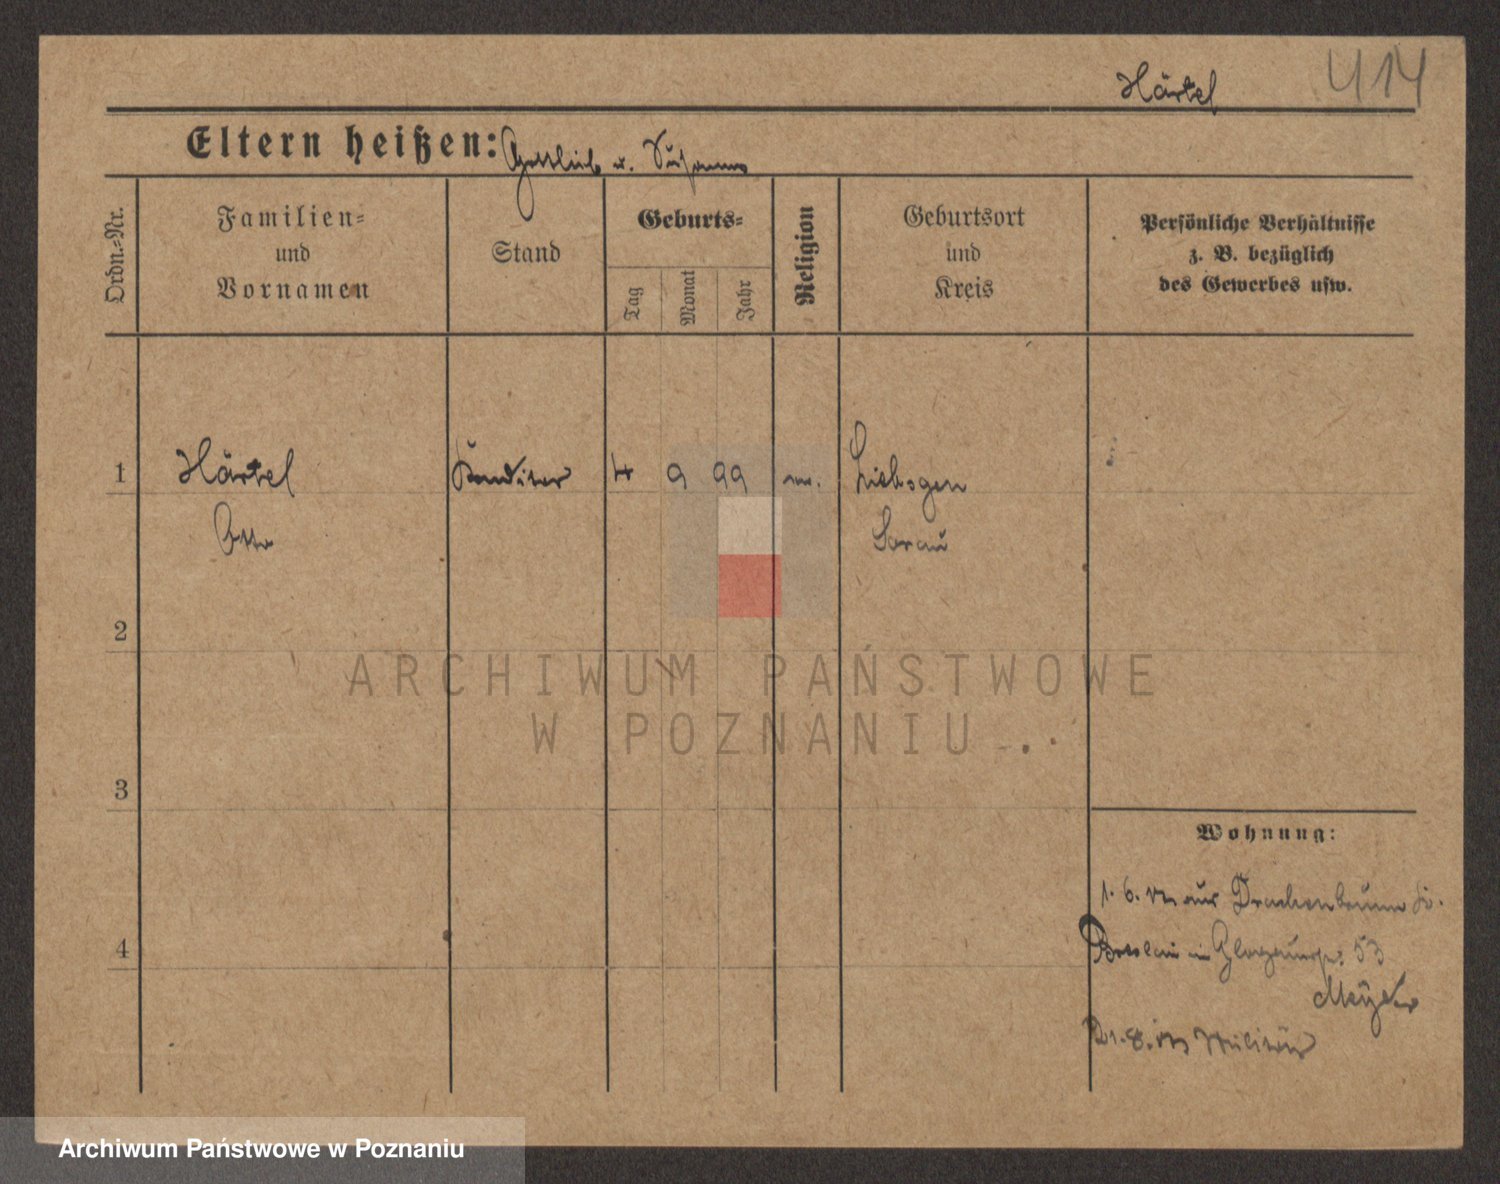 414
Härtel
Eltern heißen: Gottlieb u. Susanna
Ordn.-Nr.
Familien-
und
Vornamen
Stand
Geburts-
Tag
Monat
Jahr
Religion
Geburtsort
und
Kreis
Persönliche Verhältnisse
z. B. bezüglich
des Gewerbes usw.
1 Härtel Konditor 4 9 99 Liebsgen
Otto Sorau
2
ARCHIWUM PAŃSTWOWE
W POZNANIU
3
Wohnung:
1. 6. aus Drachenbrunn
4
Breslau in Glogauerstr. 53
Meyer
Militär
Archiwum Państwowe w Poznaniu